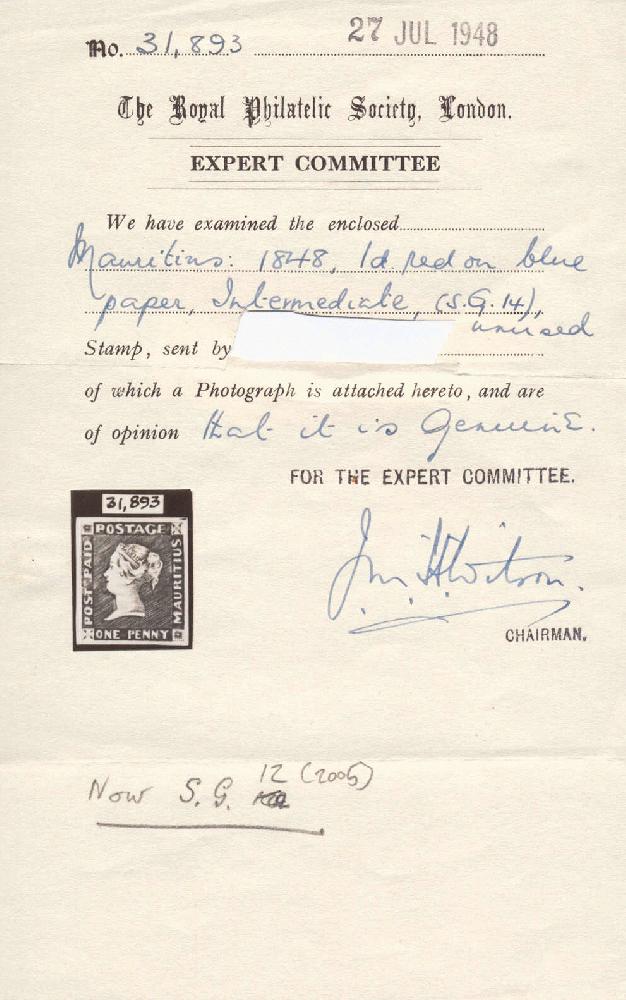 No. 31,893
27 JUL 1948
The Royal Philatelic Society, London.
EXPERT COMMITTEE
We have examined the enclosed
Mauritius: 1848, 1d. red on blue
paper, Intermediate, (S.G. 14),
unused
Stamp, sent by
of which a Photograph is attached hereto, and are
of opinion that it is Genuine.
FOR THE EXPERT COMMITTEE.
31,893
POSTAGE
POST PAID
MAURITIUS
ONE PENNY
CHAIRMAN.
Now S.G. 12 (2005)